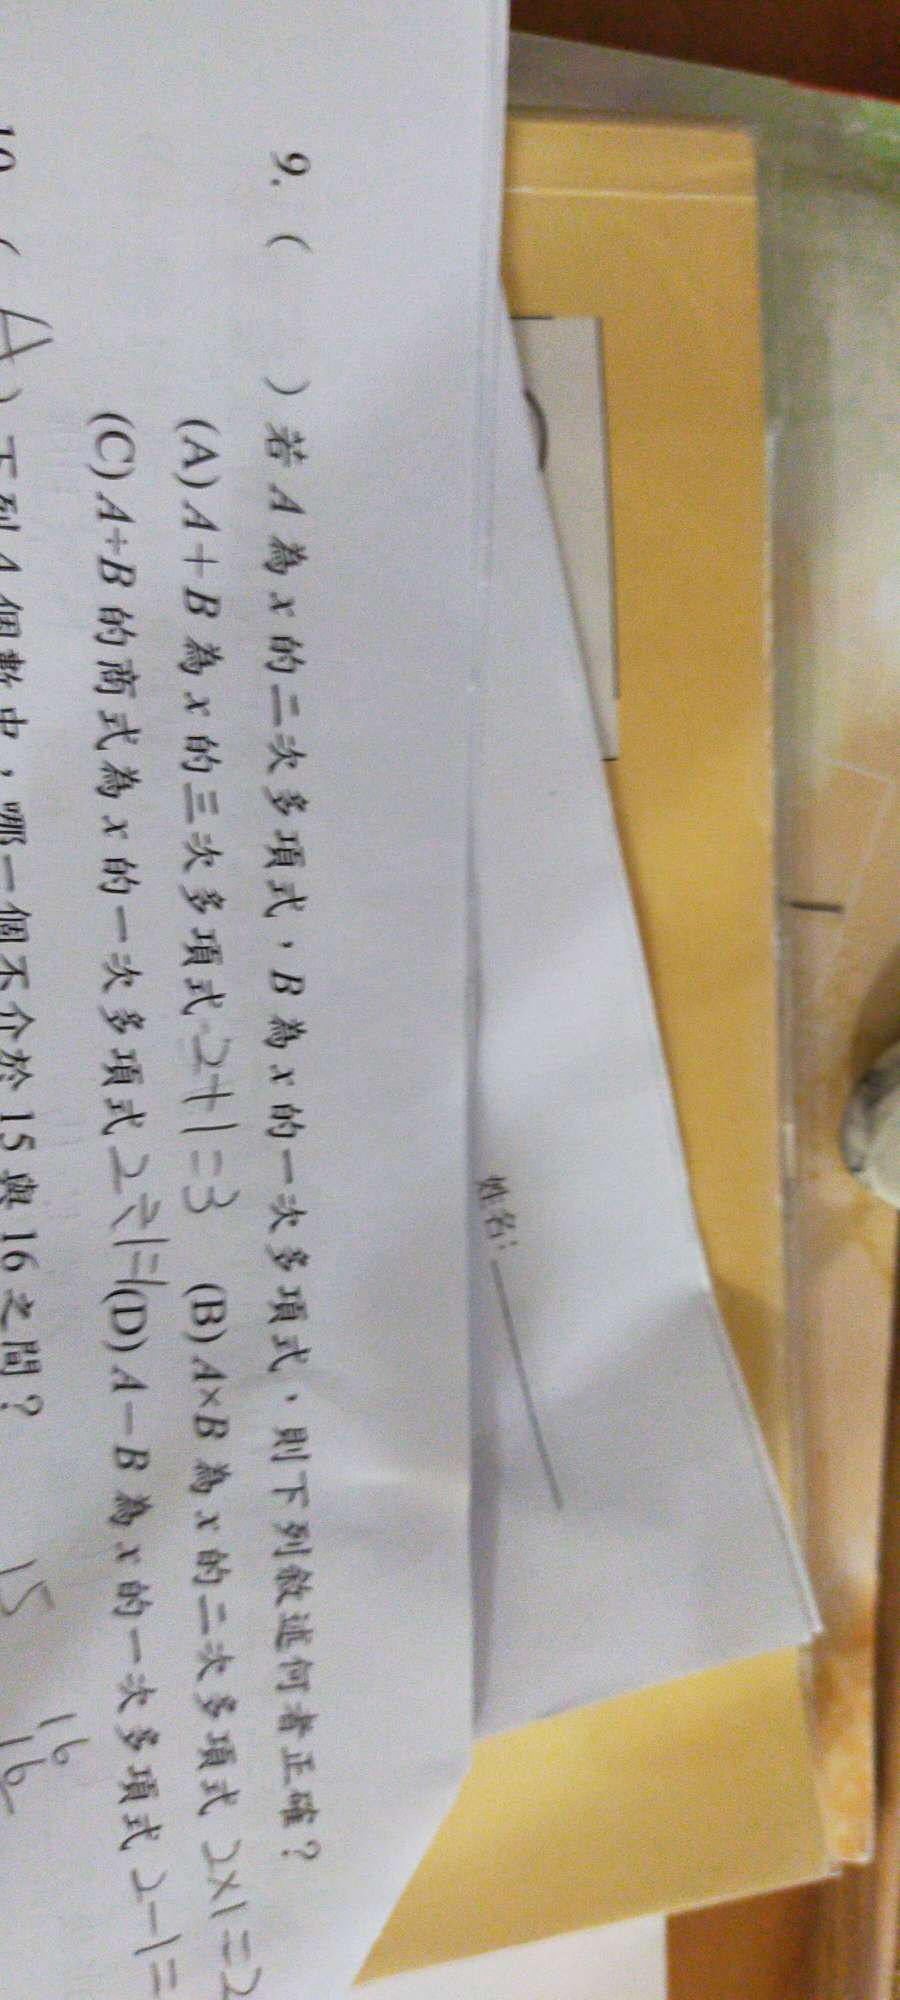 姓名：
9. (　　) 若 A 為 x 的二次多項式，B 為 x 的一次多項式，則下列敘述何者正確？
(A) A + B 為 x 的三次多項式 2+1=3 (B) A×B 為 x 的二次多項式 2×1=2
(C) A÷B 的商式為 x 的一次多項式 2÷1=1 (D) A－B 為 x 的一次多項式 2-1=
10. ( A ) 下列 4 個數中，哪一個不介於 15 與 16 之間？ 15 16
16